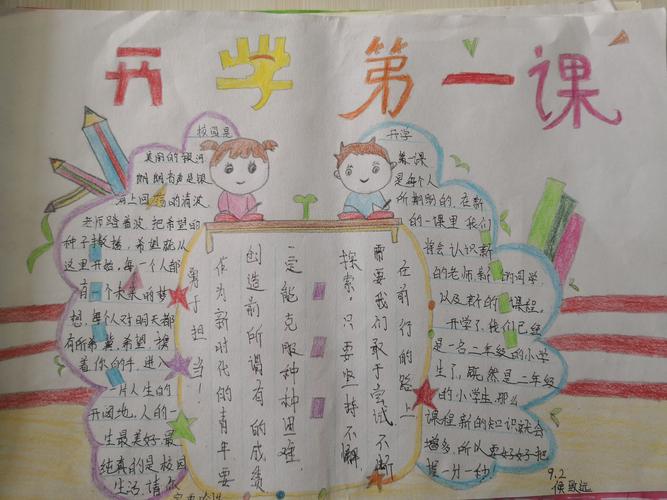 开学第一课
校园是
美丽的银河
朗朗书声是银
河上回荡的清波
老师踏着波 把希望的
种子播撒，希望就从
这里开始，每一个人都
有一个未来的梦
想，每个人对明天都
有所希冀 希望 携
着你的手，进入
一片人生的
开阔地，人的一
生最美好最
纯真的是校园
生活，请你
在前行的路上
需要我们敢于尝试不断
探索，只要坚持不懈
一定能克服种种困难，
创造前所谓有的成绩
作为新时代的青年要
勇于担当！
开学
第一课
是每个人
所期盼的，在新
的一课里 我们
将会认识新
的老师，新的同学，
以及新的课程。
开学了，我们已经
是一名二年级的小学
生了，既然是二年级
的小学生，那么
课程新的知识就会
增多，所以要好好把
握一分一秒！
9.2
侯致远